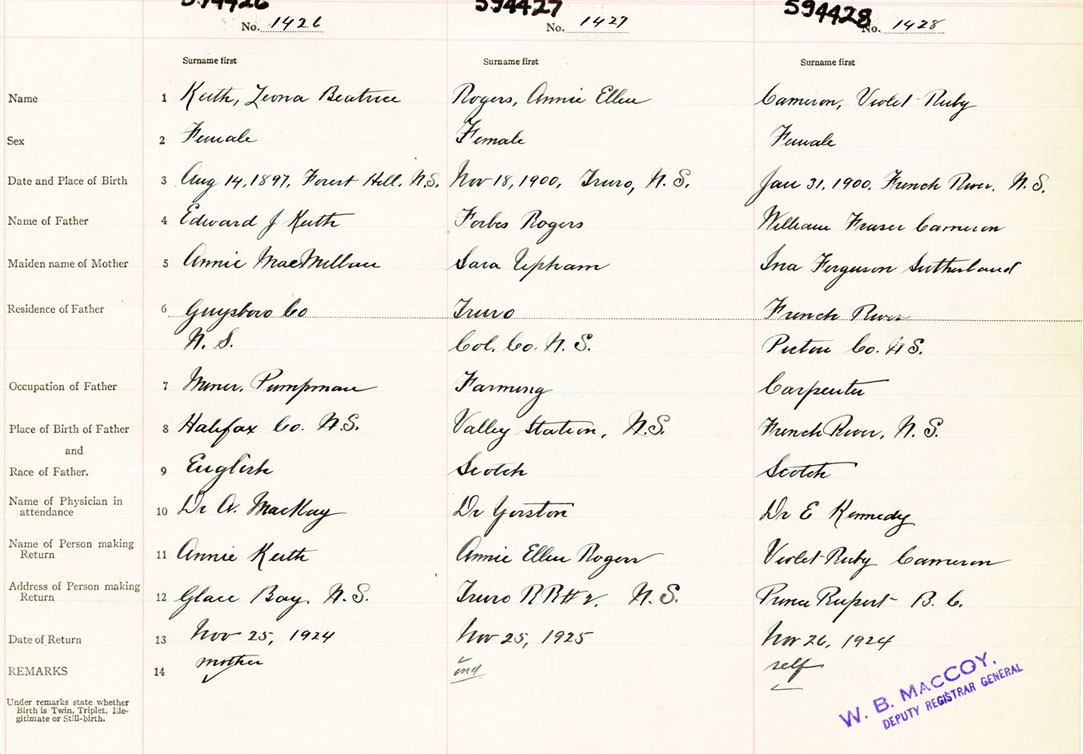 594426 594427 594428
No. 1426 No. 1427 No. 1428
Surname first Surname first Surname first
Name 1 Keith, Leona Beatrice Rogers, Annie Ellen Cameron, Violet Ruby
Sex 2 Female Female Female
Date and Place of Birth 3 Aug 14, 1897, Forest Hill, N.S. Nov 18, 1900, Truro, N.S. Jan 31, 1900, French River, N.S.
Name of Father 4 Edward J Keith Forbes Rogers William Fraser Cameron
Maiden name of Mother 5 Annie MacMillan Sara Upham Ina Ferguson Sutherland
Residence of Father 6 Guysboro Co Truro French River
N.S. Col. Co. N.S. Pictou Co. N.S.
Occupation of Father 7 Miner, Pumpman Farming Carpenter
Place of Birth of Father 8 Halifax Co. N.S. Valley Station, N.S. French River, N.S.
and
Race of Father. 9 English Scotch Scotch
Name of Physician in
attendance 10 Dr A. MacKay Dr Yorston Dr E Kennedy
Name of Person making
Return 11 Annie Keith Annie Ellen Rogers Violet Ruby Cameron
Address of Person making
Return 12 Glace Bay, N.S. Truro RR#2, N.S. Prince Rupert B.C.
Date of Return 13 Nov 25, 1924 Nov 25, 1925 Nov 26, 1924
REMARKS 14 mother self
Under remarks state whether
Birth is Twin, Triplet, Ille-
gitimate or Still-birth.
W. B. MacCOY,
DEPUTY REGISTRAR GENERAL